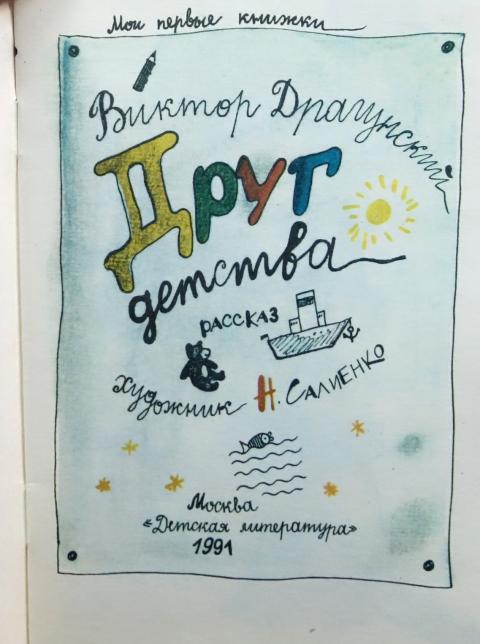 Мои первые книжки
Виктор Драгунский
Друг
детства
рассказ
художник Н. Салиенко
Москва
«Детская литература»
1991